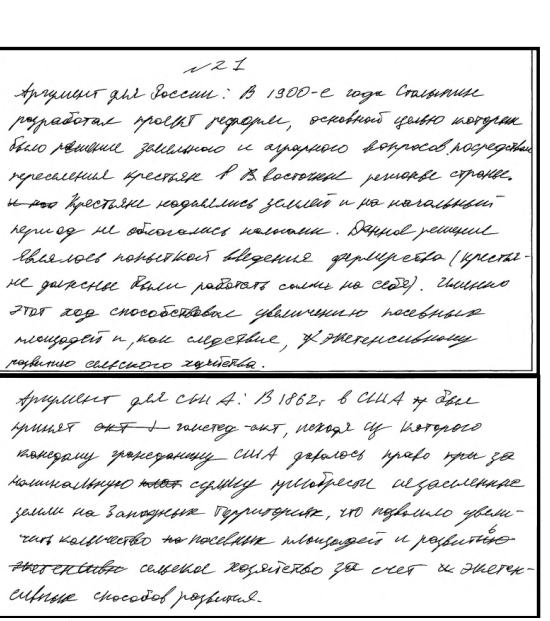 №21
Аргумент для России: В 1900-е года Столыпин
разработал проект реформы, основной целью которых
было решение земельного и аграрного вопросов посредством
переселения крестьян в В. восточные регионы страны.
Крестьяне наделялись землей и на начальный
период не облагались налогами. Данное решение
являлось попыткой введения фермерства (крестья-
не должны были работать сами на себя). Именно
этот ход способствовал увеличению посевных
площадей и, как следствие, экстенсивному
развитию сельского хозяйства.
Аргумент для США: В 1862г в США был
принят гомстед-акт, исходя из которого
каждому гражданину США давалось право при за
номинальную сумму приобрести незаселенные
земли на Западных территориях, что позволило увели-
чить количество посевных площадей и развить
сельское хозяйство за счет экстен-
сивных способов развития.